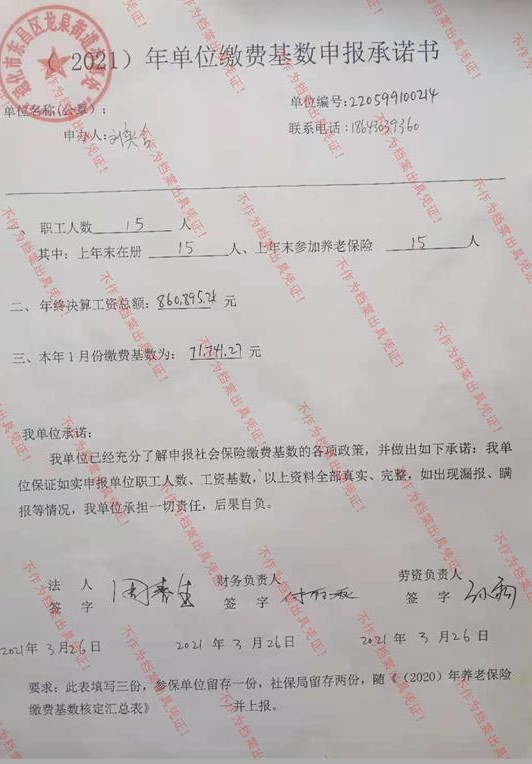 （2021）年单位缴费基数申报承诺书
单位名称(公章)：
单位编号:220599100214
申办人:刘奕含
联系电话:18643639360
、职工人数 15 人
其中：上年末在册 15 人、上年末参加养老保险 15 人
二、年终决算工资总额: 860,895.24 元
三、本年1月份缴费基数为: 71,741.27 元
我单位承诺:
我单位已经充分了解申报社会保险缴费基数的各项政策，并做出如下承诺：我单
位保证如实申报单位职工人数、工资基数，以上资料全部真实、完整，如出现漏报、瞒
报等情况，我单位承担一切责任，后果自负。
法 人 财务负责人 劳资负责人
签 字 周春生 签 字 签 字
2021年 3月26日 2021年 3月26日 2021年 3月26日
要求：此表填写三份，参保单位留存一份，社保局留存两份，随《（2020）年养老保险
缴费基数核定汇总表》 一并上报。
通化市东昌区龙泉街道
不作为档案出具凭证！